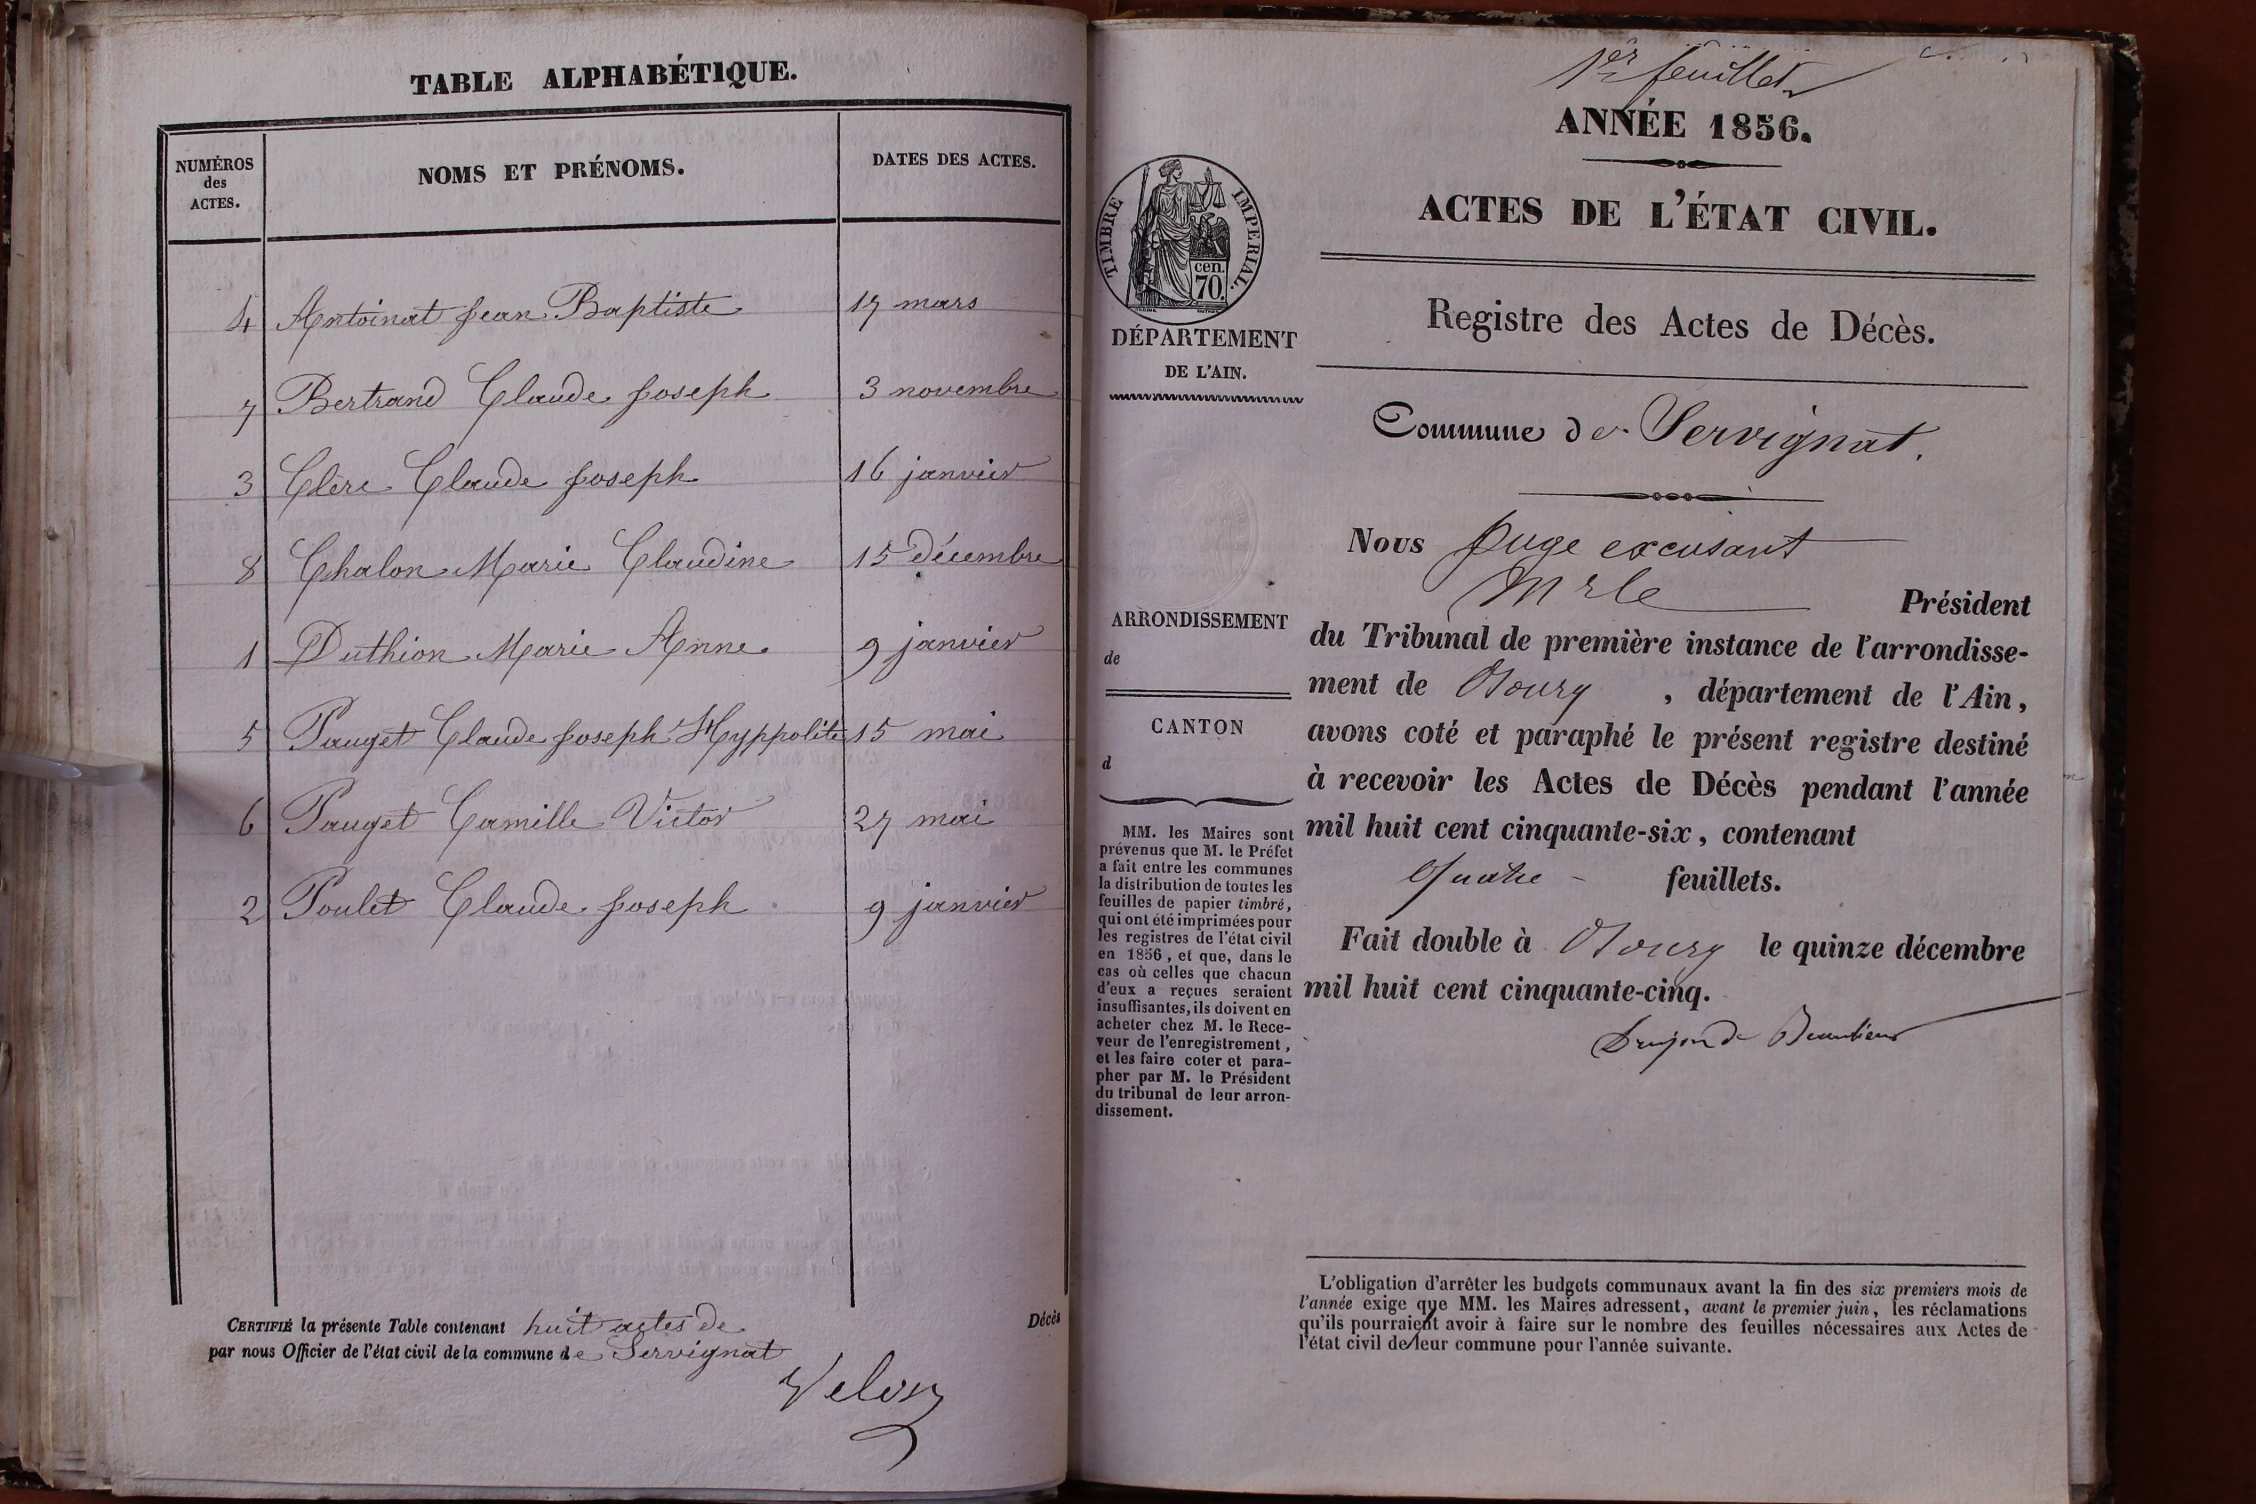 TABLE ALPHABÉTIQUE.
NUMÉROS des ACTES.
NOMS ET PRÉNOMS.
DATES DES ACTES.
4 Antoinat Jean Baptiste 17 mars
7 Bertrand Claude Joseph 3 novembre
3 Clère Claude Joseph 16 janvier
8 Chalon Marie Claudine 15 décembre
1 Duthion Marie Anne 9 janvier
5 Pauget Claude Joseph Hyppolite 15 mai
6 Pauget Camille Victor 27 mai
2 Poulet Claude Joseph 9 janvier
CERTIFIÉ la présente Table contenant huit actes de Décès
par nous Officier de l'état civil de la commune de Servignat
1er feuillet
ANNÉE 1856.
ACTES DE L'ÉTAT CIVIL.
TIMBRE IMPERIAL.
cen.
70.
DÉPARTEMENT
DE L'AIN.
Registre des Actes de Décès.
Commune de Servignat.
Nous Juge excusant
Mr le Président
ARRONDISSEMENT
de
CANTON
d
du Tribunal de première instance de l'arrondisse-
ment de Bourg, département de l'Ain,
avons coté et paraphé le présent registre destiné
à recevoir les Actes de Décès pendant l'année
mil huit cent cinquante-six, contenant
Quatre feuillets.
Fait double à Bourg le quinze décembre
mil huit cent cinquante-cinq.
MM. les Maires sont
prévenus que M. le Préfet
a fait entre les communes
la distribution de toutes les
feuilles de papier timbré,
qui ont été imprimées pour
les registres de l'état civil
en 1856, et que, dans le
cas où celles que chacun
d'eux a reçues seraient
insuffisantes, ils doivent en
acheter chez M. le Rece-
veur de l'enregistrement,
et les faire coter et para-
pher par M. le Président
du tribunal de leur arron-
dissement.
L'obligation d'arrêter les budgets communaux avant la fin des six premiers mois de
l'année exige que MM. les Maires adressent, avant le premier juin, les réclamations
qu'ils pourraient avoir à faire sur le nombre des feuilles nécessaires aux Actes de
l'état civil de leur commune pour l'année suivante.